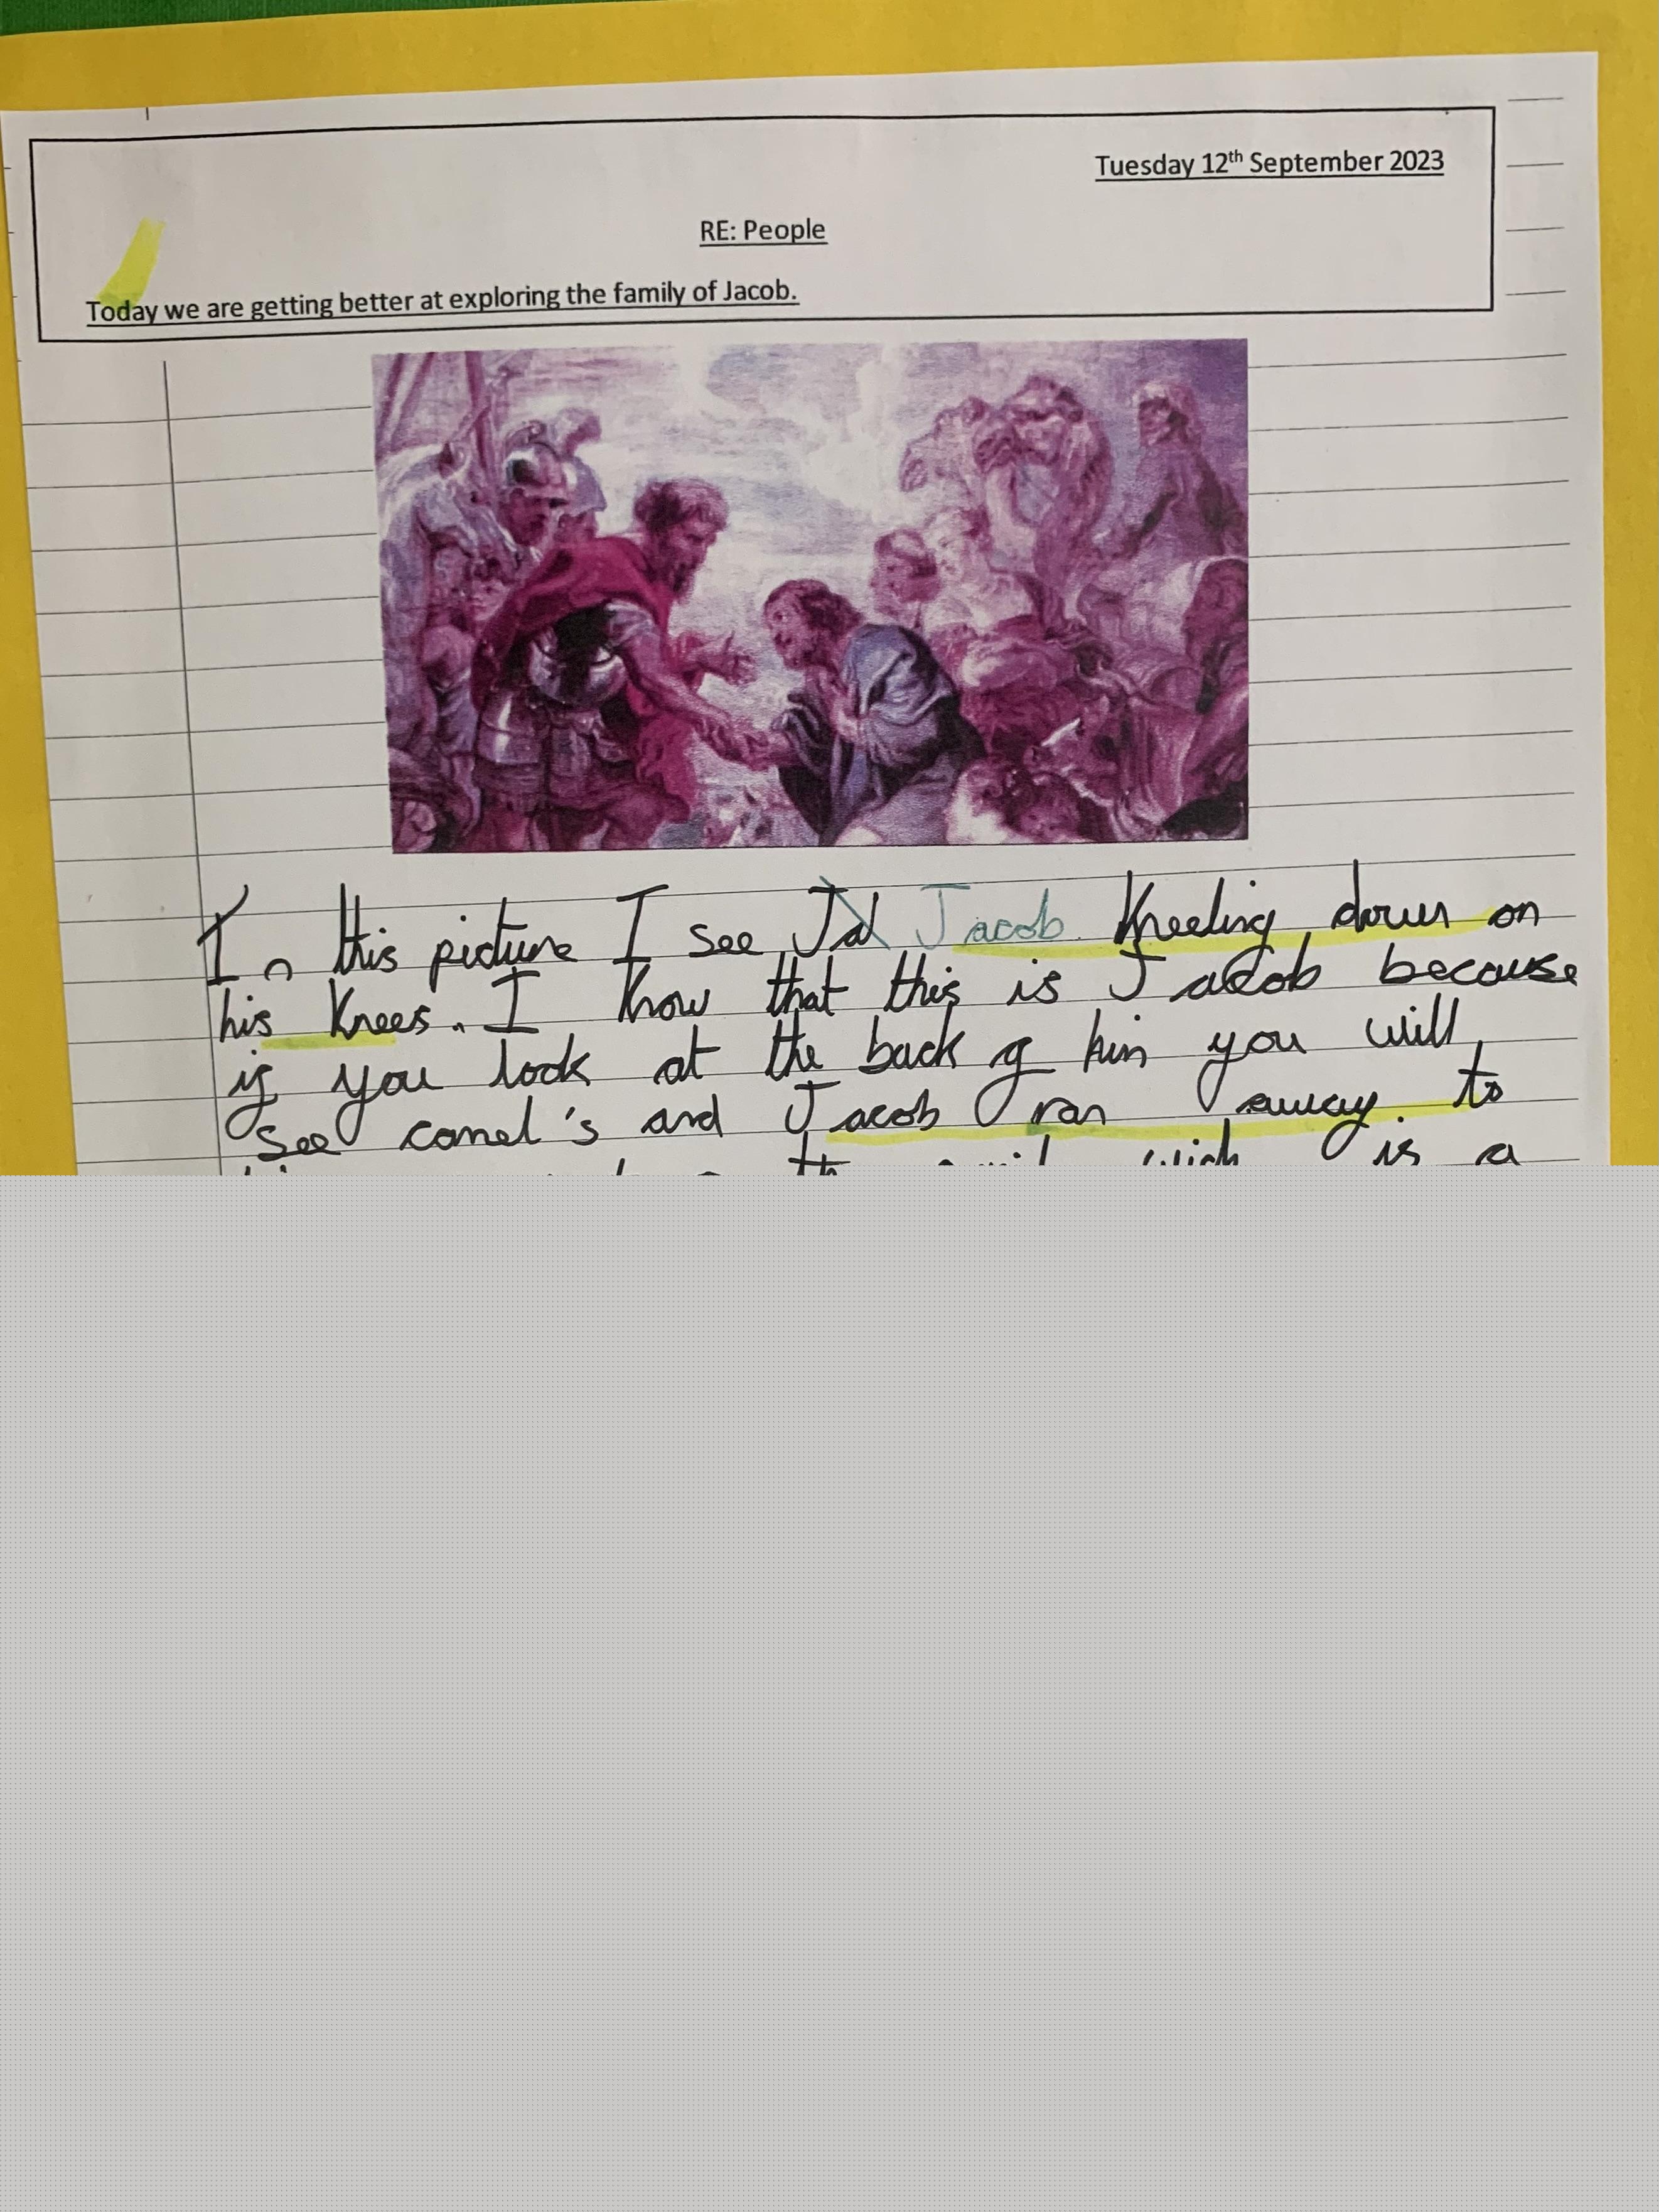 Tuesday 12th September 2023
RE: People
Today we are getting better at exploring the family of Jacob.
In this picture I see Jacob Kneeling down on
his Knees. I Know that this is Jacob because
if you look at the back of him you will
see camel's and Jacob ran away to
is a